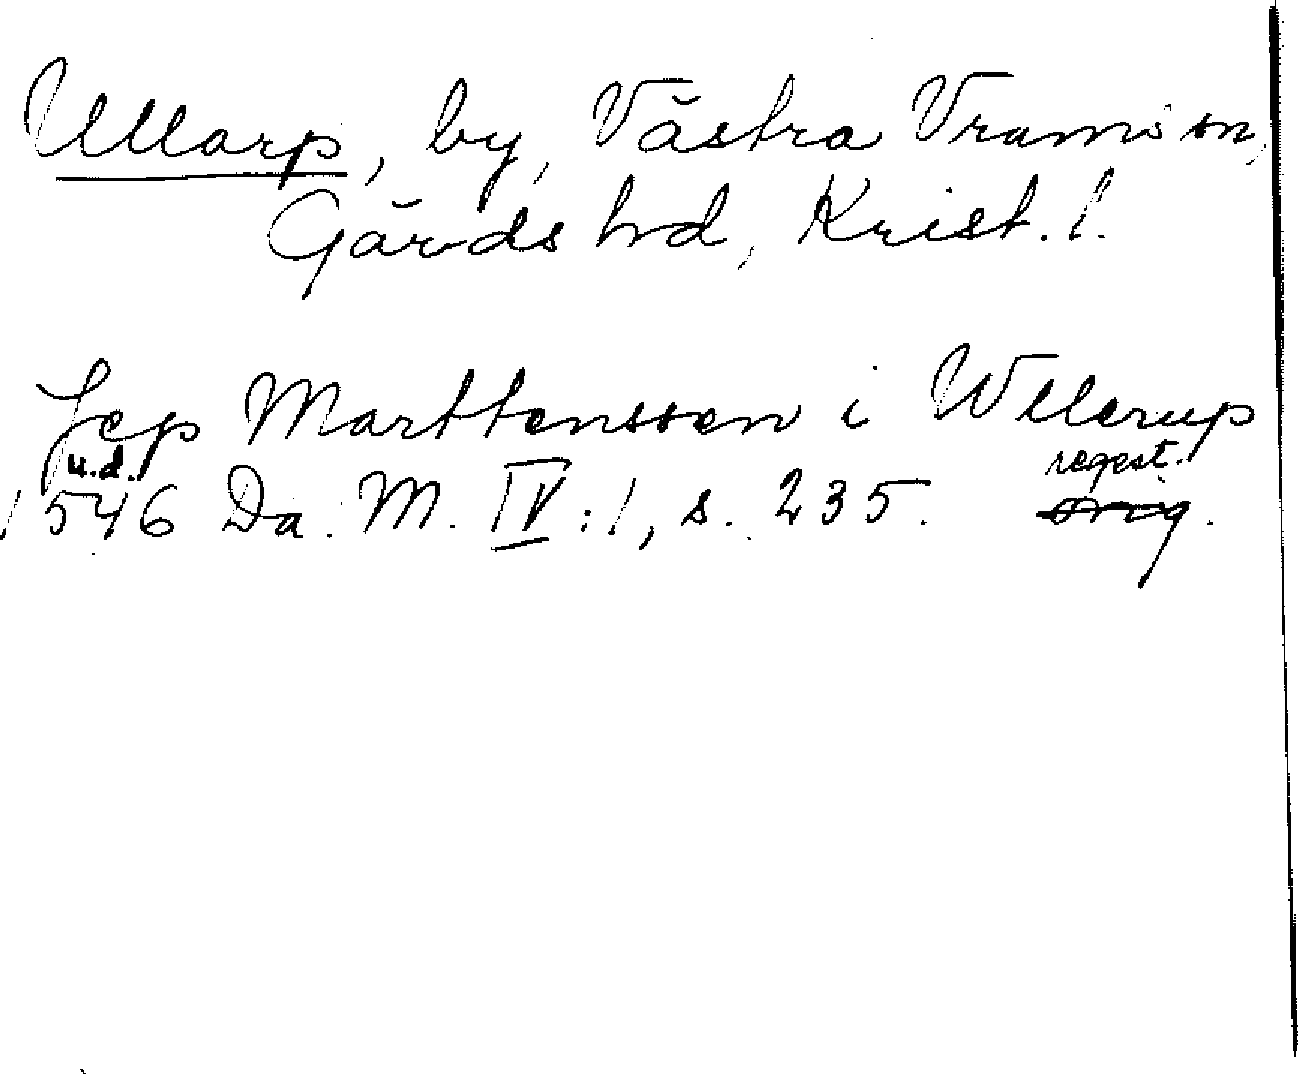 Ullarp, by, Västra Vrams sn,
Gärds hd, Krist. l.
Jep Marttenssen i Wllerup
u.d. regest.
1546 Da. M. IV:1, s. 235. orig.